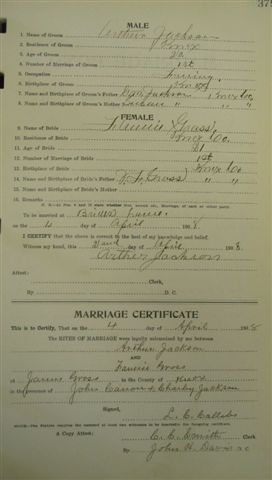 375
MALE
1. Name of Groom Arthur Jackson
2. Residence of Groom Knox
3. Age of Groom 20.
4. Number of Marriage of Groom 1st
5. Occupation
6. Birthplace of Groom Knox
7. Name and Birthplace of Groom's Father Jackson Knox Co.
8. Name and Birthplace of Groom's Mother " "
FEMALE
9. Name of Bride Fannie Gross
10. Residence of Bride Knox Co.
11. Age of Bride 21
12. Number of Marriage of Bride 1st
13. Birthplace of Bride Knox Co
14. Name and Birthplace of Bride's Father Gross " "
15. Name and Birthplace of Bride's Mother " "
16. Remarks
To be married at Bride's
on the 4 day of April 1908
I CERTIFY that the above is correct to the best of my knowledge and belief.
Witness my hand, this day of April, 1908.
Arther Jackson
Attest:
Clerk,
By D. C.
MARRIAGE CERTIFICATE
This is to Certify, That on the 4 day of April 1908
The RITES OF MARRIAGE were legally solemnized by me between
Arthur Jackson
AND
Fannie Gross
at Gross in the County of Knox
in the presence of John & Charley Jackson
Signed,
L. C.
A Copy Attest: C. C. Smith Clerk
By John H. Davis D.C.